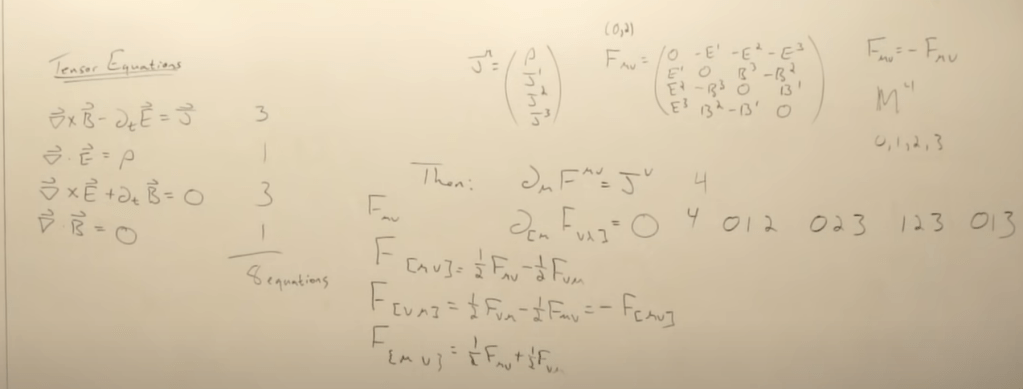 Tensor Equations
∇⃗×B⃗-∂ₜE⃗=J⃗ 3
∇⃗·E⃗=ρ 1
∇⃗×E⃗+∂ₜB⃗=0 3
∇⃗·B⃗=0 1
8 equations
J^μ=(ρ
J¹
J²
J³)
(0,2)
F_μν=(0 -E¹ -E² -E³
E¹ 0 B³ -B²
E² -B³ 0 B¹
E³ B² -B¹ 0)
F_μν=-F_μν
M⁴
0,1,2,3
Then: ∂_μ F^μν=J^ν 4
∂_[μ F_νλ]=0 4 012 023 123 013
F_μν
F_[μν]=½F_μν-½F_νμ
F_[νμ]=½F_νμ-½F_μν=-F_[μν]
F_{μν}=½F_μν+½F_νμ